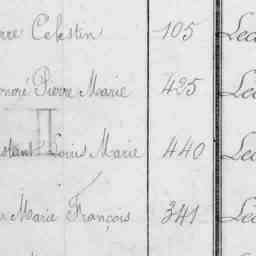 rre Celestin 105 Lec
onoré Pierre Marie 425 Lec
nstant Louis Marie 440 Lec
Marie François 341 Lec